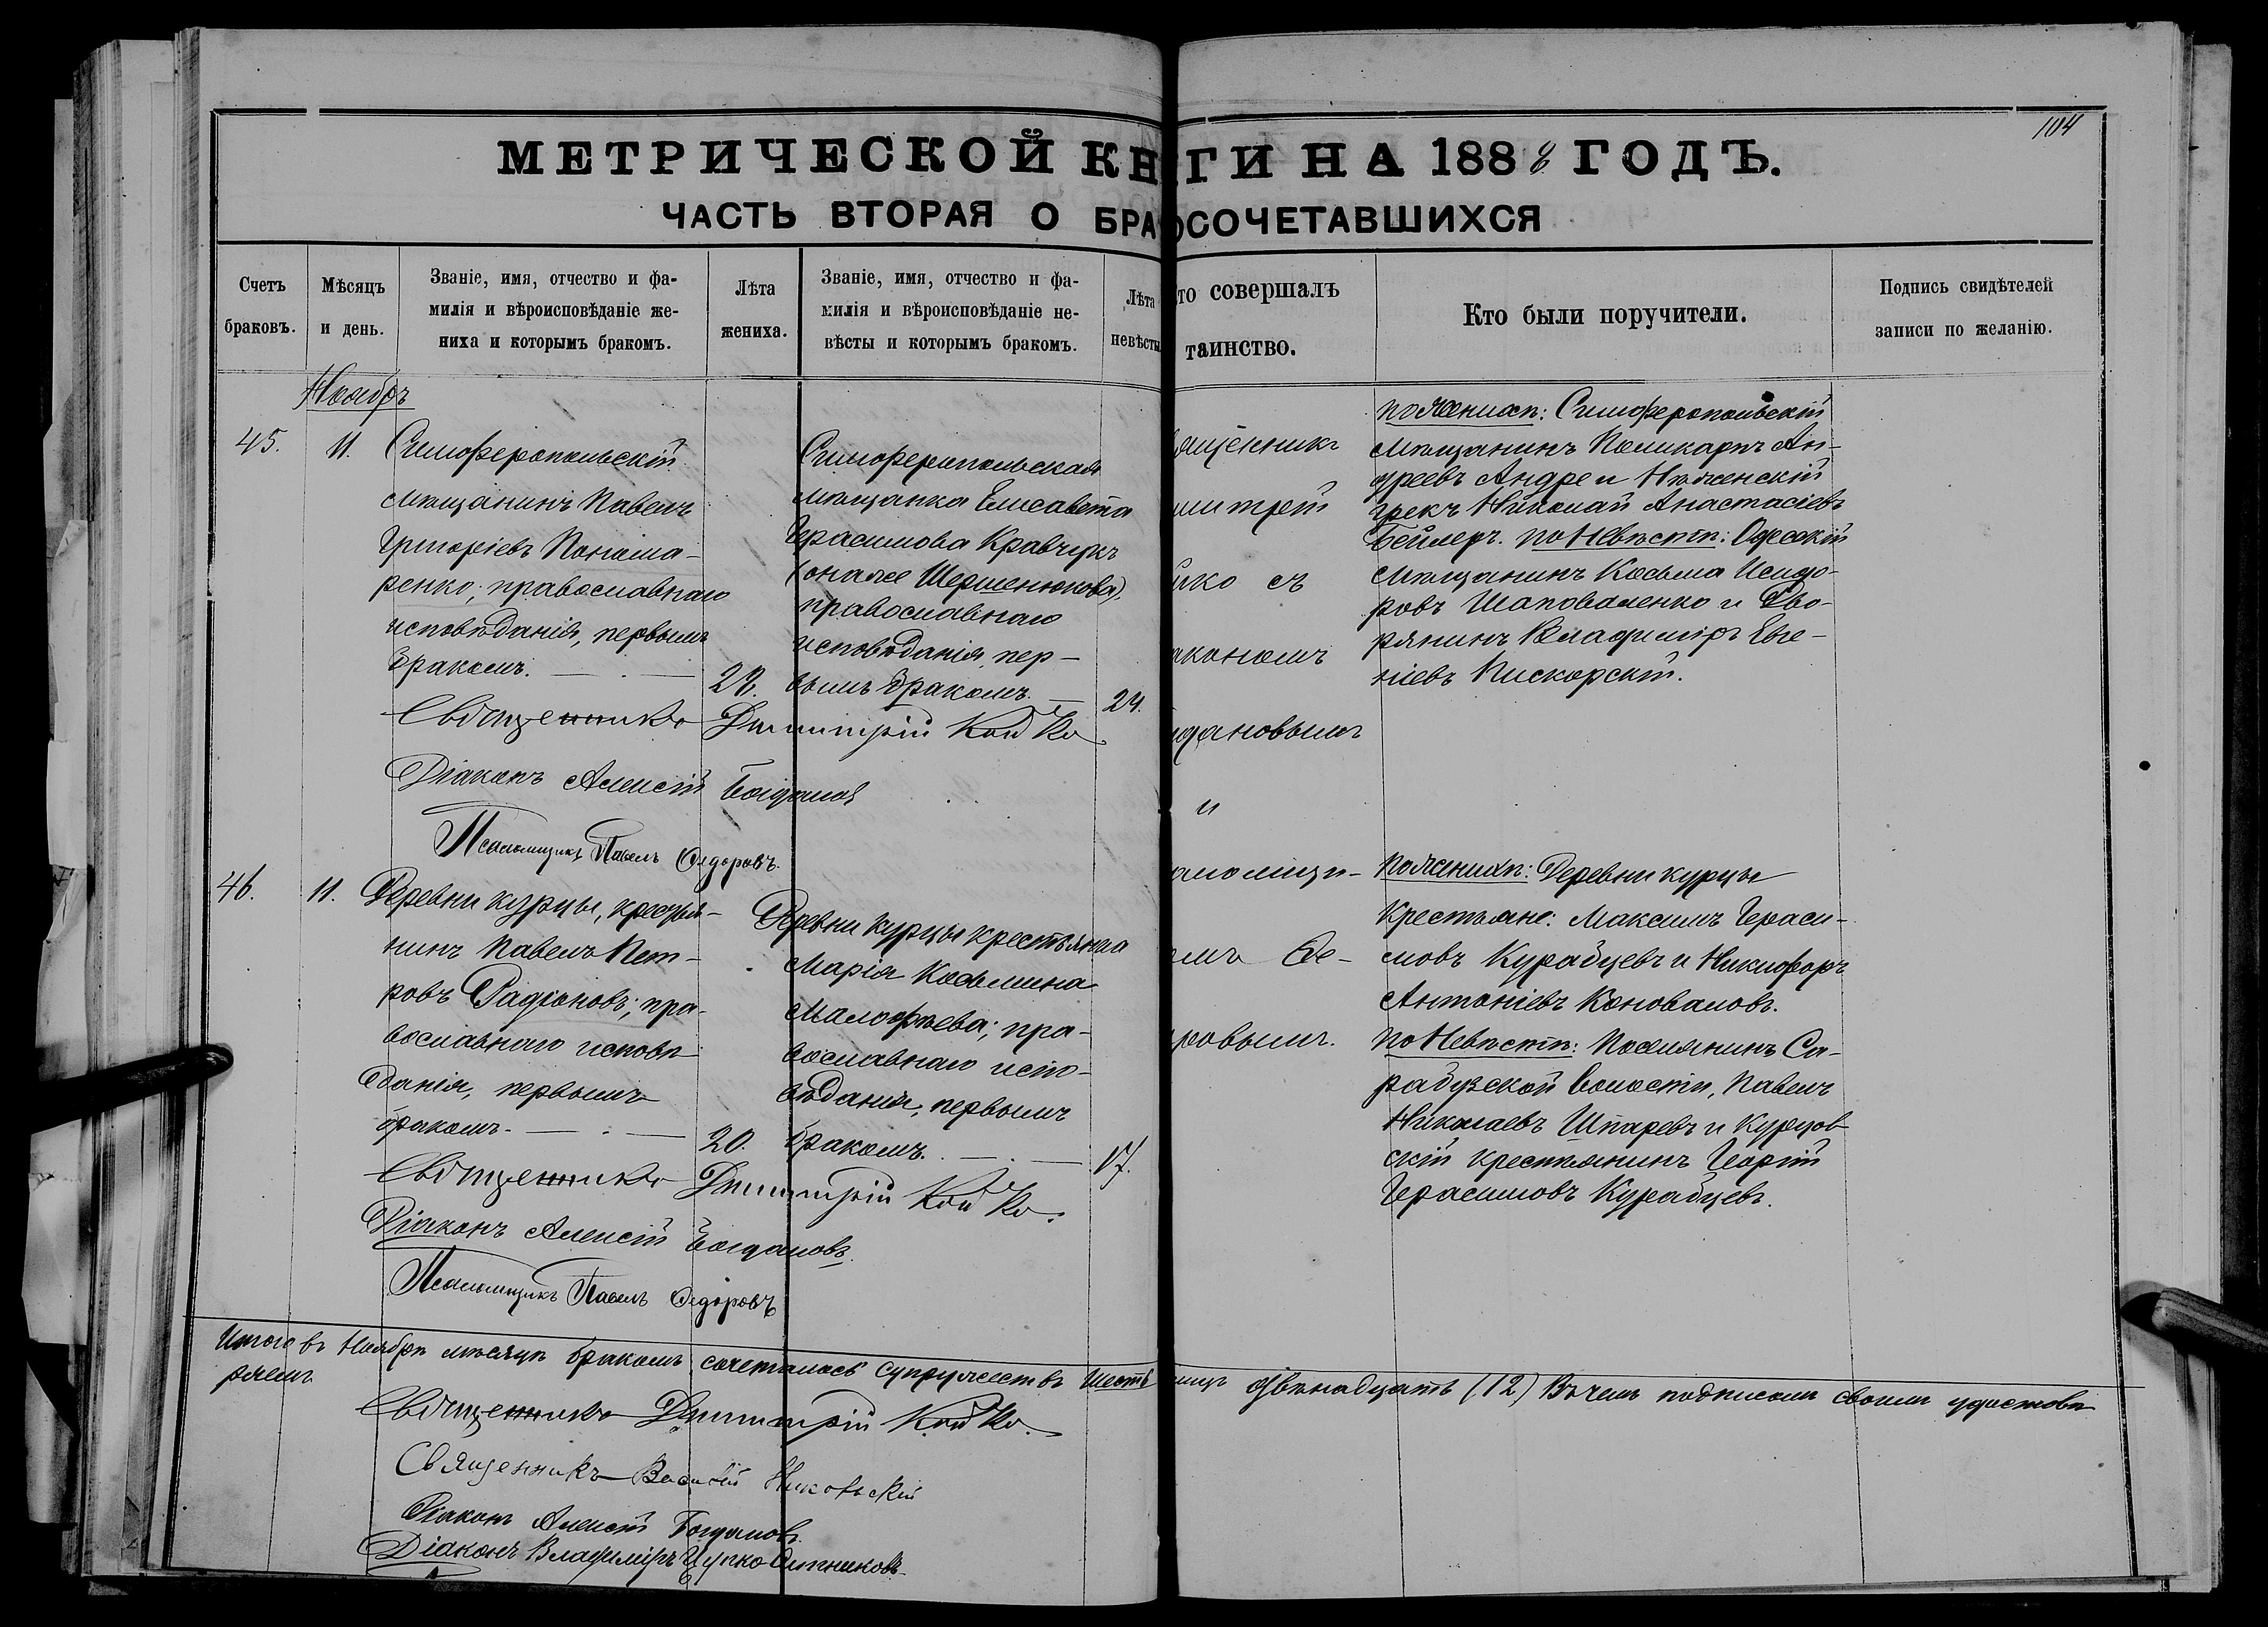 104
МЕТРИЧЕСКОЙ КН ГИ НА 1888 ГОДЪ.
ЧАСТЬ ВТОРАЯ О БРА ОСОЧЕТАВШИХСЯ
Счетъ
браковъ.
Мѣсяцъ
и день.
Званіе, имя, отчество и фа-
милія и вѣроисповѣданіе же-
ниха и которымъ бракомъ.
Лѣта
жениха.
Званіе, имя, отчество и фа-
милія и вѣроисповѣданіе не-
вѣсты и которымъ бракомъ.
Лѣта
невѣсты
то совершалъ
таинство.
Кто были поручители.
Подпись свидѣтелей
записи по желанію.
Ноябрь
45.
11.
Симферопольскій
мѣщанинъ Павелъ
Григоріевъ Понома-
ренко; православнаго
исповѣданія, первымъ
бракомъ.
22.
Симферопольская
мѣщанка Елисавета
Герасимова Кравчукъ
(она же Шершенюкова),
православнаго
исповѣданія, пер-
вымъ бракомъ.
24.
ященникъ
имитрій
йко съ
акономъ
дановымъ
и
аломщи-
омъ Ѳе-
ровымъ.
по женихѣ: Симферопольскій
мѣщанинъ Поликарпъ Ан-
дреевъ Андре и Нѣженскій
грекъ Николай Анастасіевъ
Бейлеръ. по Невѣстѣ: Одесскій
мѣщанинъ Косьма Исидо-
ровъ Шаповаленко и Дво-
рянинъ Владиміръ Евге-
ніевъ Пискорскій.
Священникъ Димитрій Койко
Діаконъ Алексій Богдановъ
Псаломщикъ Павелъ Ѳедоровъ.
46.
11.
Деревни Курцы, крестья-
нинъ Павелъ Пет-
ровъ Радіоновъ; пра-
вославнаго исповѣ-
данія, первымъ
бракомъ.
20.
Деревни Курцы крестьянка
Марія Косьмина
Малофѣева; пра-
вославнаго испо-
вѣданія, первымъ
бракомъ.
17.
по женихѣ: Деревни Курцы
Крестьяне: Максимъ Гераси-
мовъ Курабцевъ и Никифоръ
Антоніевъ Коноваловъ.
по Невѣстѣ: Поселянинъ Са-
рабузской волости, Павелъ
Николаевъ Шпаревъ и Курцов-
скій крестьянинъ Георгій
Герасимовъ Курабцевъ.
Священникъ Димитрій Койко.
Діаконъ Алексій Богдановъ.
Псаломщикъ Павелъ Ѳедоровъ
Итого въ Ноябрѣ мѣсяцѣ бракомъ сочеталось супружествъ шесть лицъ двѣнадцать (12) Въ чемъ подписомъ своимъ удостовѣ-
ряемъ
Священникъ Димитрій Койко.
Священникъ Василій Никольскій
Діаконъ Алексій Богдановъ.
Діаконъ Владиміръ Цупко-Ситниковъ.